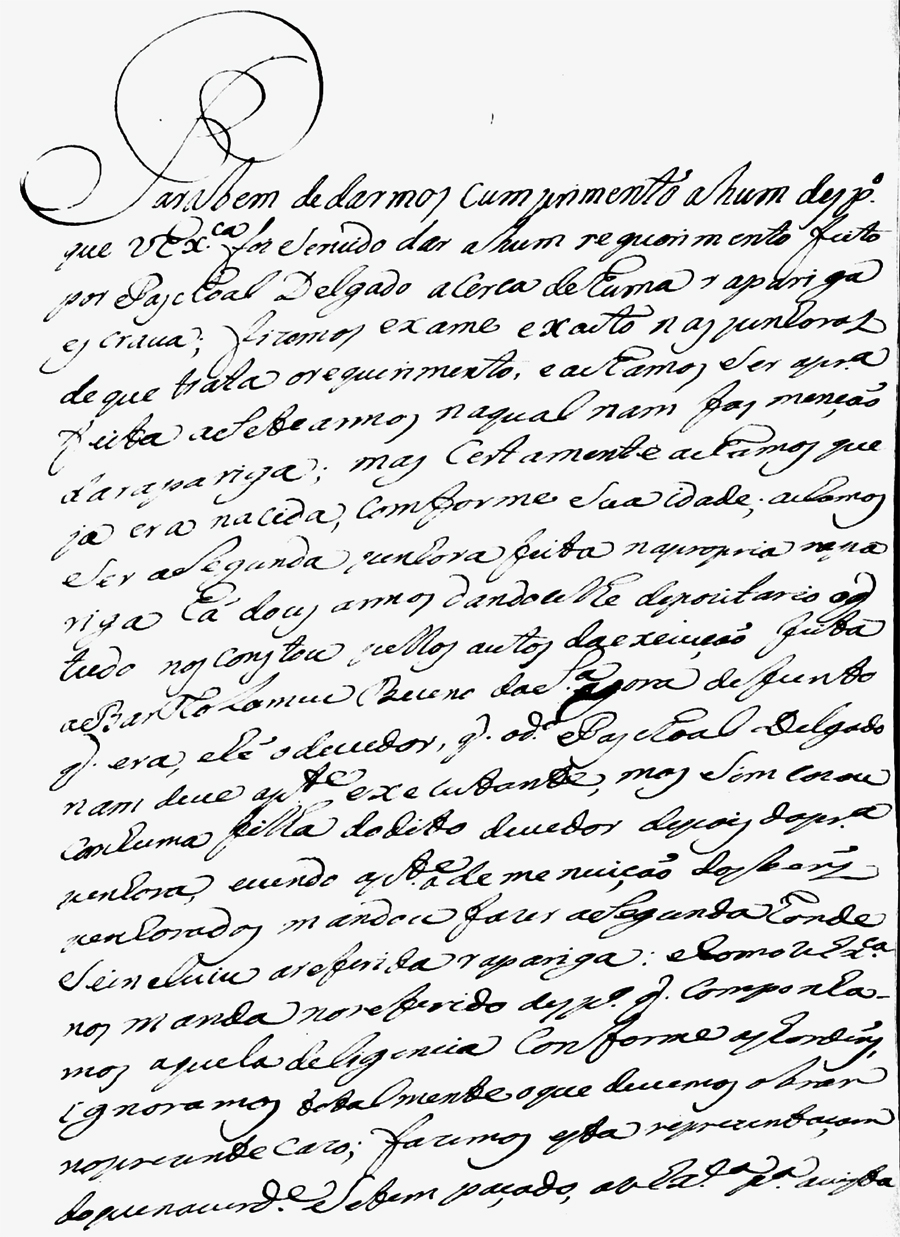 Para bem de darmos Cumprimento a hum desp.º
que V Ex.ca foi Servido dar a hum requerimento feito
por Paschoal Delgado acerca de huma rapariga
escrava; fizemos exame exacto nas penhoras
de que trata o requerimento, e achamos Ser apr.a
feita a Sete annos na qual nam fas menção
da rapariga; mas Certamente achamos que
ja era nacida, Comforme Sua idade; achamos
Ser a Segunda penhora feita na propria rapa
riga há dous annos dandoselhe depozitario o q
tudo nos constou pellos autos da execução feita
a Bartholameu Bueno da S.a agora defunto
q. era, elé o devedor, q. o d.o Paschoal Delgado
nam deve a p.te executante, mas Sim cazou
Com huma filha do dito devedor depois da pr.a
penhora, e vendo a p.te a demenuição dos beñs
penhorados mandou fazer a Segunda honde
Se incluiu a referida rapariga: e como V Ex.ca
nos manda no referido desp.º q. componha-
mos aquela deligencia Comforme as hordeñs,
ignoramos totalmente o que devemos obrar
no prezente cazo; fazemos esta reprezentaçam
do que na verd.e Se tem paçado, a V Ex.a p.a a vista